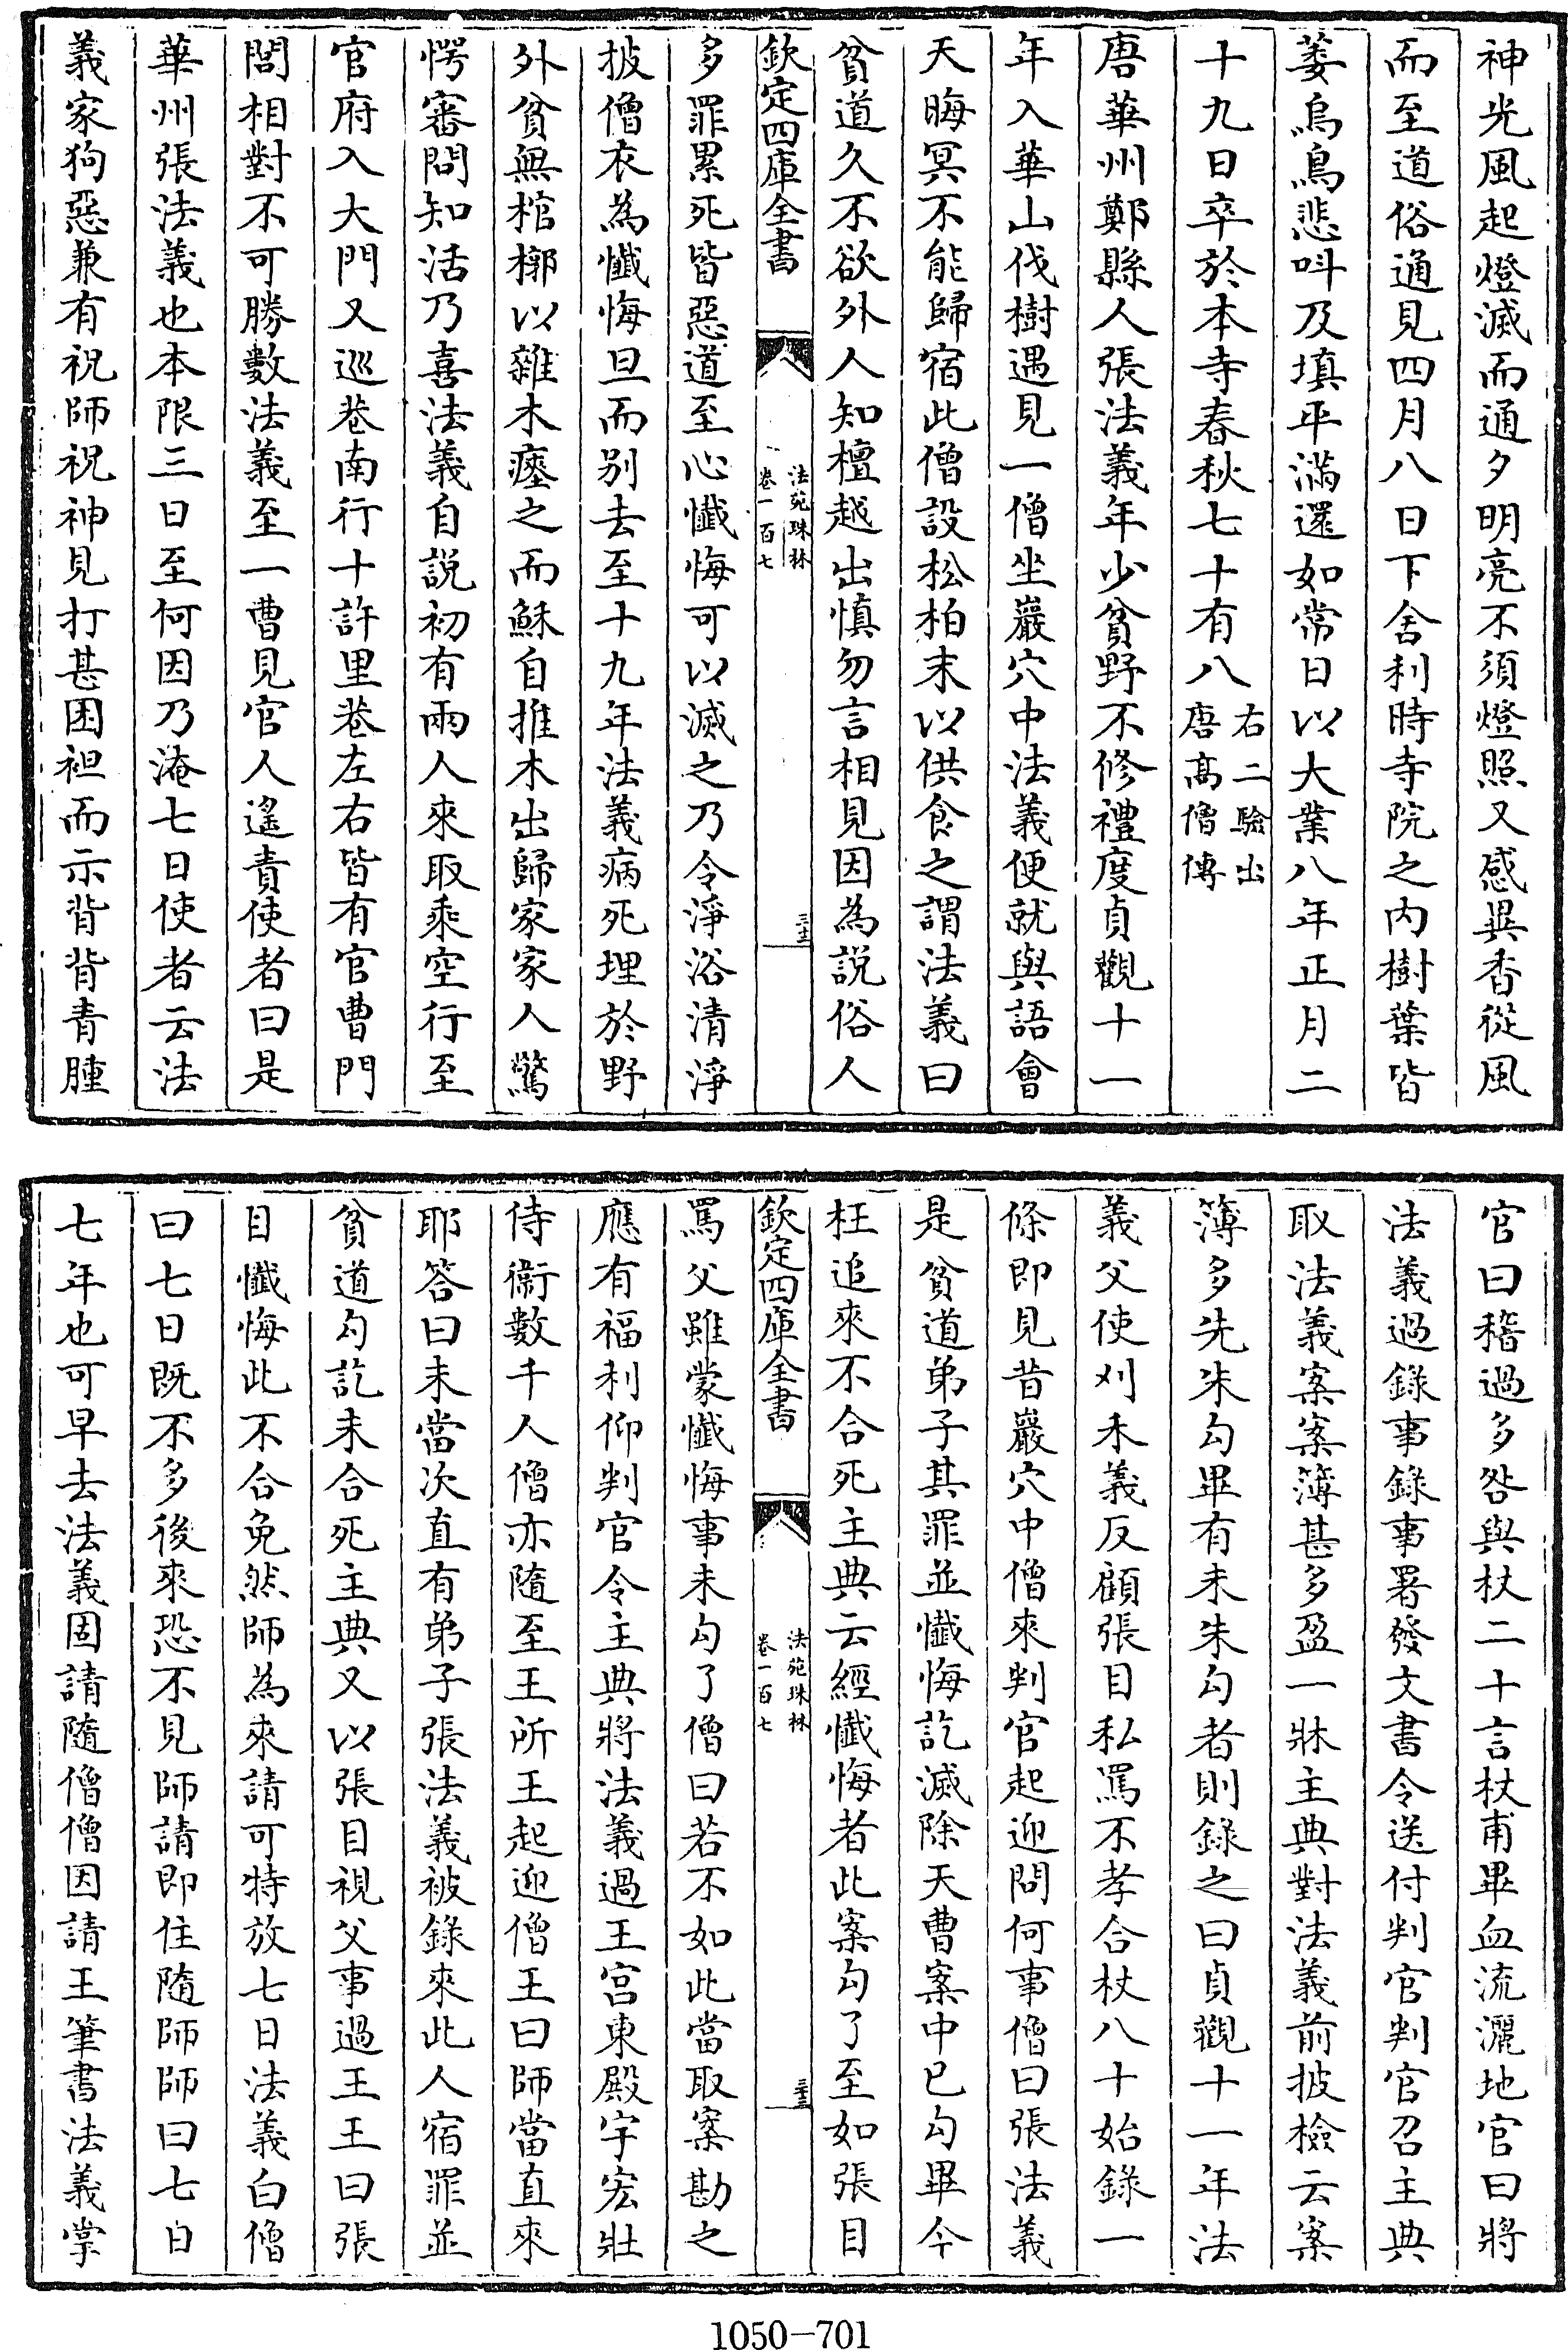 神光風起燈滅而通夕明亮不須燈照又感異香從風
而至道俗通見四月八日下舍利時寺院之内樹葉皆
萎烏鳥悲呌及填平滿還如常日以大業八年正月二
十九日卒於本寺春秋七十有八右二驗出唐髙僧傳
唐華州鄭縣人張法義年少貧野不修禮度貞觀十一
年入華山伐樹遇見一僧坐巖穴中法義便就與語會
天晦冥不能歸宿此僧設松柏末以供食之謂法義曰
貧道久不欲外人知檀越出慎勿言相見因為説俗人
欽定四庫全書
法苑珠林
卷一百七
三十三
多罪累死皆惡道至心懴悔可以滅之乃令淨浴清淨
披僧衣為懴悔旦而别去至十九年法義病死埋於野
外貧無棺槨以雜木瘞之而穌自推木出歸家家人驚
愕審問知活乃喜法義自説初有兩人來取乘空行至
官府入大門又巡巷南行十許里巷左右皆有官曹門
閭相對不可勝數法義至一曹見官人遙責使者曰是
華州張法義也本限三日至何因乃淹七日使者云法
義家狗惡兼有祝師祝神見打甚困袒而示背背青腫
官曰稽過多咎與杖二十言杖甫畢血流灑地官曰將
法義過錄事錄事署發文書令送付判官判官召主典
取法義案案簿甚多盈一牀主典對法義前披檢云案
簿多先朱勾畢有未朱勾者則錄之曰貞觀十一年法
義父使刈禾義反顧張目私罵不孝合杖八十始錄一
條即見昔巖穴中僧來判官起迎問何事僧曰張法義
是貧道弟子其罪並懴悔訖滅除天曹案中已勾畢今
枉追來不合死主典云經懴悔者此案勾了至如張目
欽定四庫全書
法苑珠林
卷一百七
三十三
罵父雖蒙懴悔事未勾了僧曰若不如此當取案勘之
應有福利仰判官令主典將法義過王宫東殿宇宏壯
侍衛數千人僧亦隨至王所王起迎僧王曰師當直來
耶答曰未當次直有弟子張法義被錄來此人宿罪並
貧道勾訖未合死主典又以張目視父事過王王曰張
目懴悔此不合免然師為來請可特放七日法義白僧
曰七日既不多後來恐不見師請即住隨師師曰七日
七年也可早去法義固請隨僧僧因請王筆書法義掌
1050-701